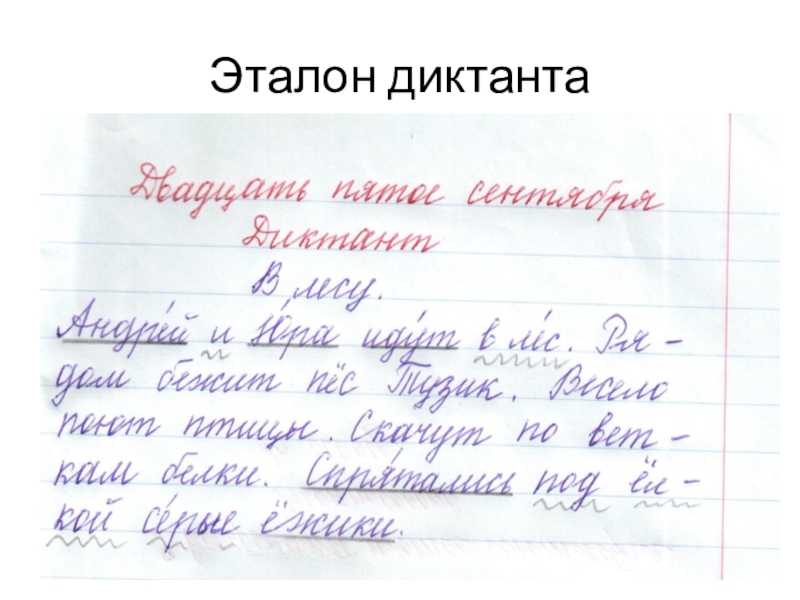 Эталон диктанта
Двадцать пятое сентября
Диктант
В лесу.
Андре́й и Ю́ра иду́т в ле́с. Ря-
дом бежит пёс Тузик. Весело
поют птицы. Скачут по вет-
кам белки. Спря́тались под ёл-
кой се́рые ёжики.